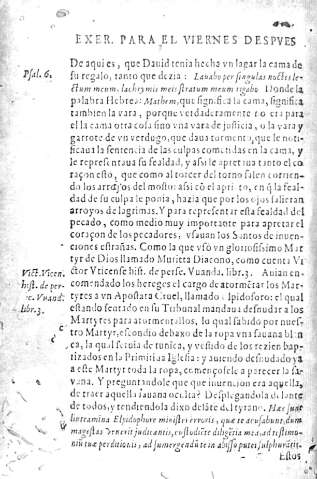 EXER. PARA EL VIERNES DESPVES
Psal. 6.
De aqui es, que Dauid tenia hecha vn lagar la cama de
su regalo, tanto que dezia: Lauabo per singulas noctes lec
tum meum, lachrymis meis stratum meum rigabo. Donde la
palabra Hebrea: Mathem, que significa la cama, significa
tambien la vara, porque verdaderamente no era para
el la cama otra cosa sino vna vara de justicia, o la vara y
garrote de vn verdugo, que daua tormento, que le noti-
ficaua la sentencia de las culpas cometidas en la cama, y
le representaua su fealdad, y assi le apretaua tanto el co
raçon esto, que como al torcer del torno salen corrien-
do los arrojos del mosto: assi cō el aprieto, en q̄ la fealdad
de su culpa le ponia, hazia que por los ojos saliessen
arroyos de lagrimas. Y para representar esta fealdad del
pecado, como medio muy importante para apretar el
coraçon de los pecadores; vsauan los Santos de inuen-
ciones estrañas. Como la que vsò vn gloriosissimo Mar
tyr de Dios llamado Muritta Diacono, como cuenta Vi
ctor Vticense hist. de perse. Vuanda. libr. 3. Auian en-
Vict. Vticen.
hist. de per-
se. Vuand.
libr. 3.
comendado los hereges el cargo de atormētar los Mar-
tyres a vn Apostata Cruel, llamado Elpidoforo: el qual
estando sentado en su Tribunal mandaua desnudar a los
Martyres para atormentallos, lo qual sabido por nues-
tro Martyr, escondio debaxo de la ropa vna sauana blan
ca, la qual seruia de tunica, y vestido de los rezien bap-
tizados en la Primitiua Iglesia: y auiendo desnudado ya
a este Martyr toda la ropa, començole a parecer la sa-
uana. Y preguntandole que que inuencion era aquella,
de traer aquella sauana oculta? Desplegandola delante
de todos, y tendiendola dixo delāte del tyrano. Hæc sunt
linteamina Elpidophore minister erroris, quæ te accusabunt, dum
maiestas venerit iudicantis, custodiētur diligētia mea, ad testimo-
niū tuæ perditionis, ad submergendū te in abysso putei sulphurātis.
Estos